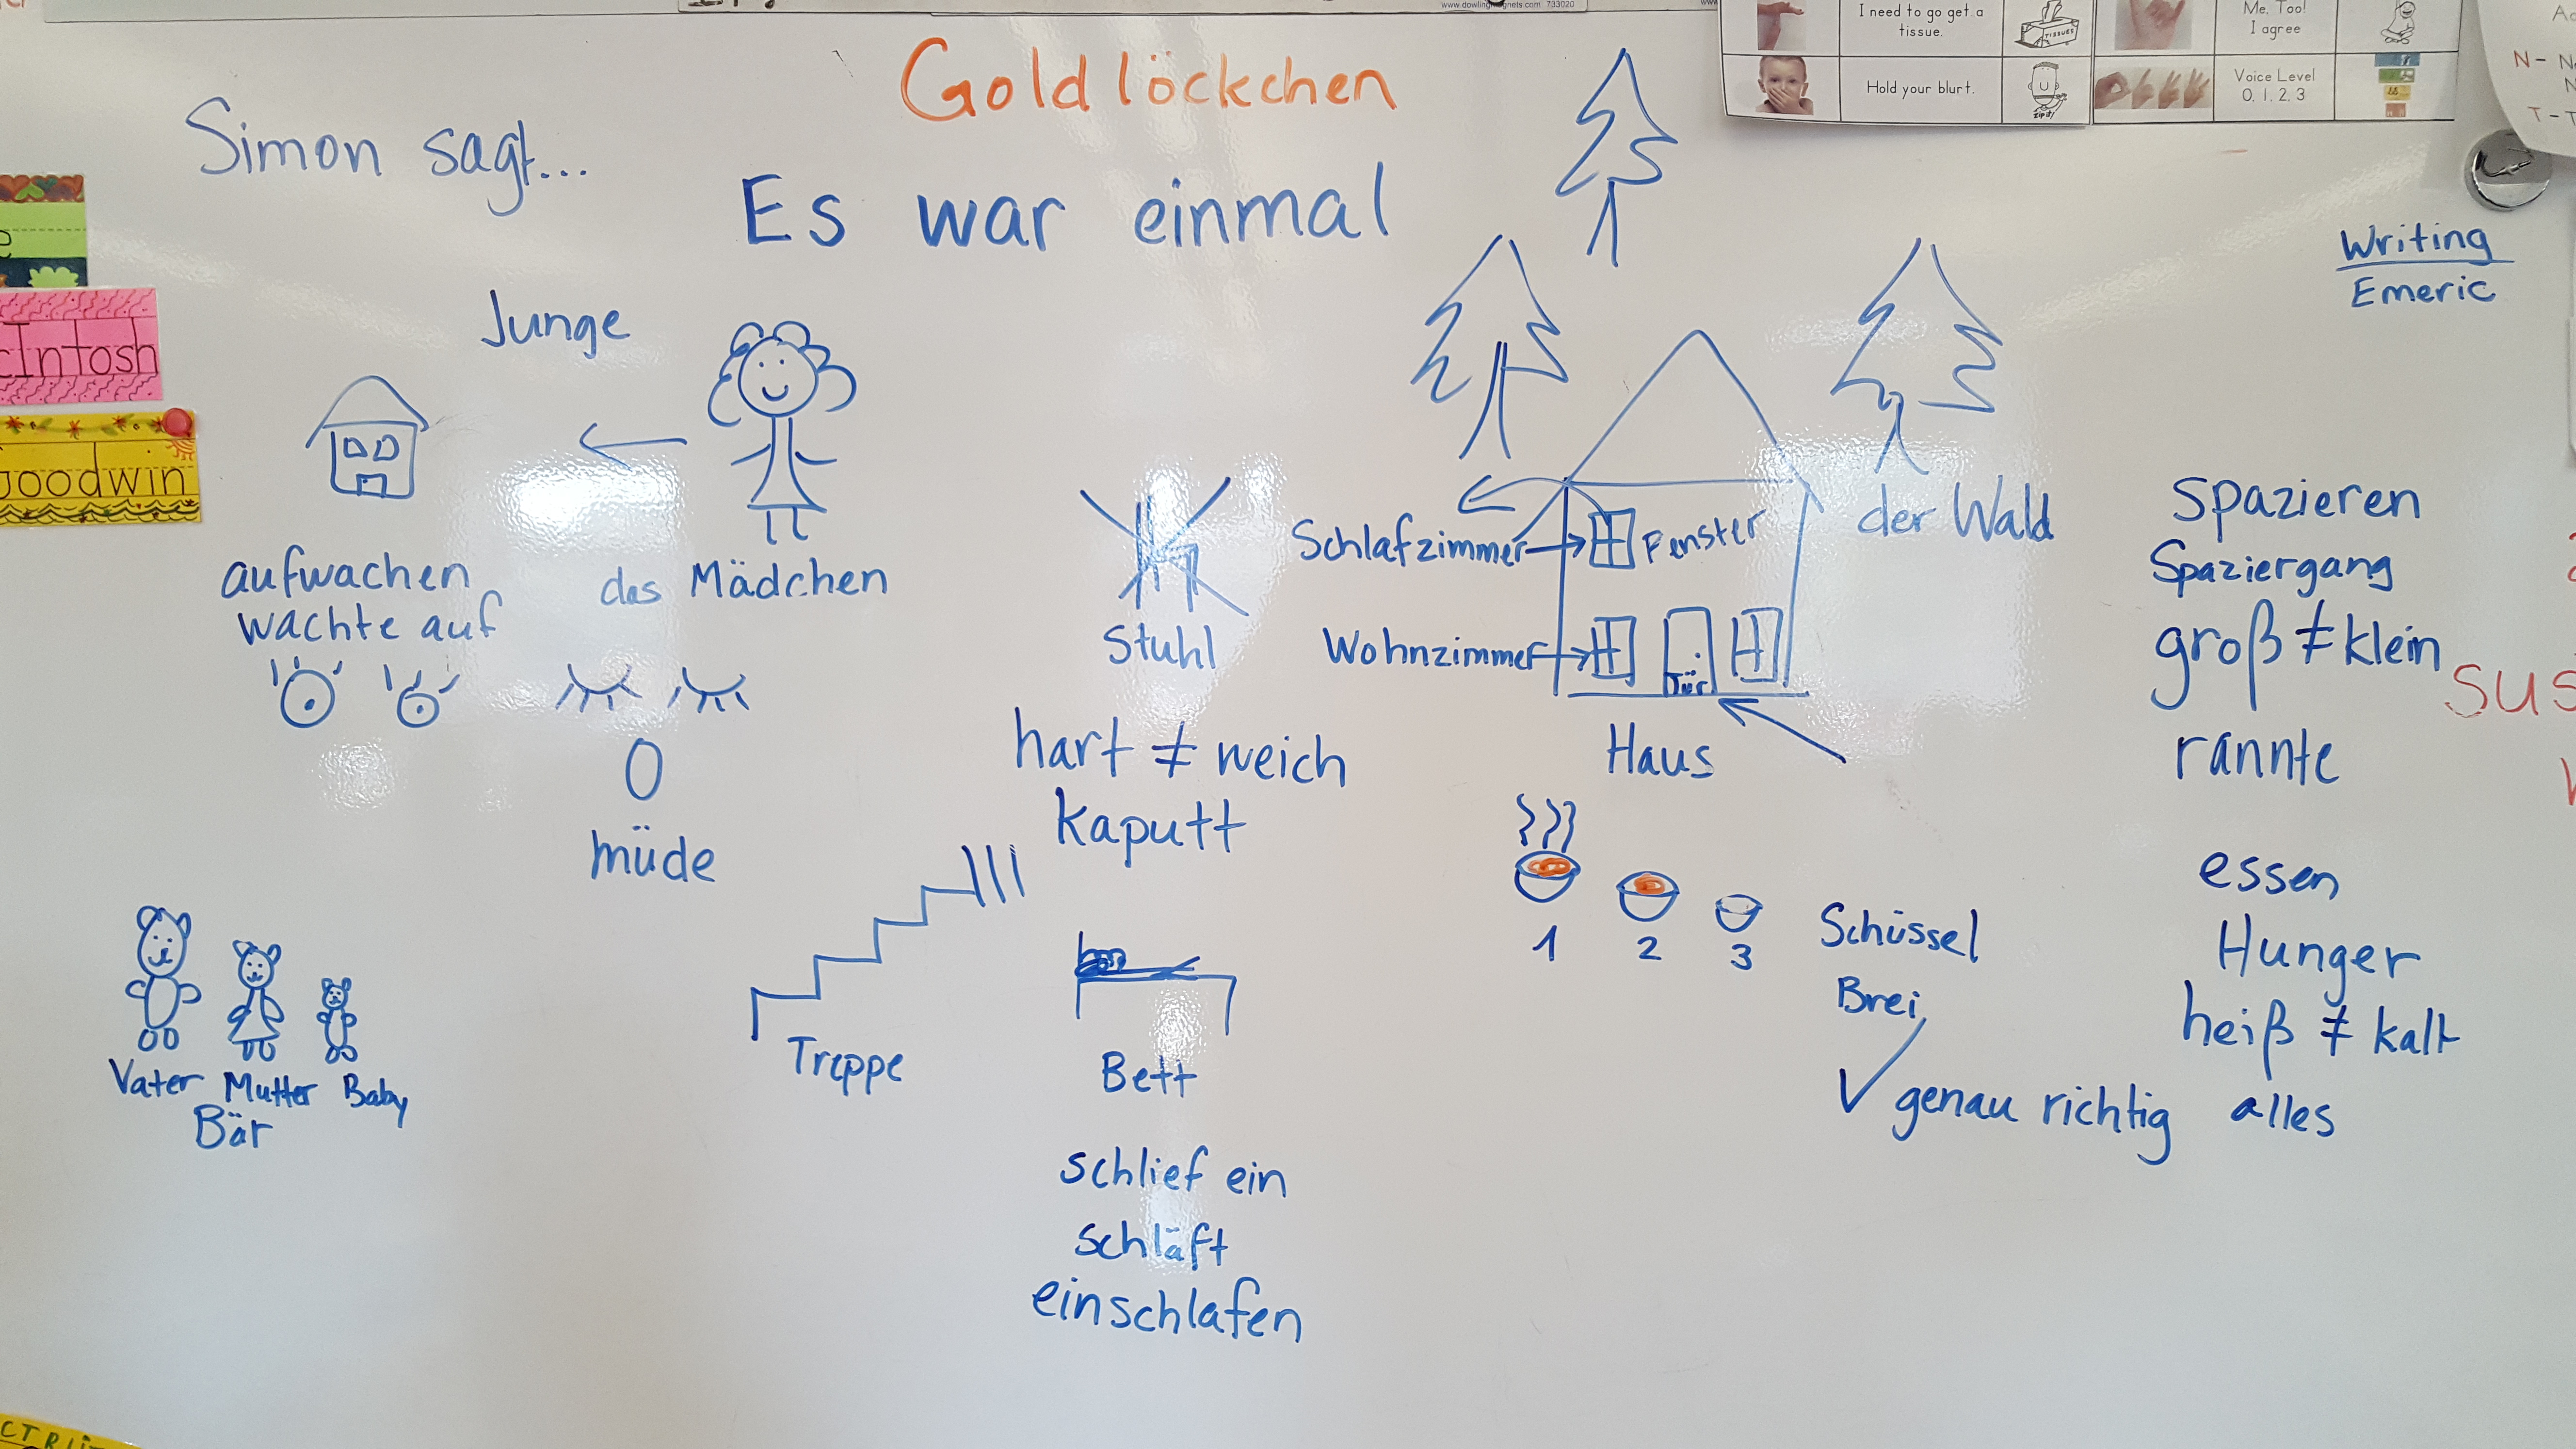 www.dowlingmagnets.com 733020
I need to go get a
tissue.
TISSUES
Me, Too!
I agree
Hold your blurt.
zip it!
Voice Level
0, 1, 2, 3
N - N
T - T
Goldlöckchen
Simon sagt...
Es war einmal
Writing
Emeric
e
cIntosh
Goodwin
Junge
aufwachen
wachte auf
das Mädchen
müde
Vater Mutter Baby
Bär
Stuhl
hart ≠ weich
kaputt
Treppe
Bett
schlief ein
schläft
einschlafen
Schlafzimmer
Fenster
Wohnzimmer
Tür
Haus
der Wald
1 2 3
Schüssel
Brei
genau richtig
spazieren
Spaziergang
groß ≠ klein
rannte
essen
Hunger
heiß ≠ kalt
alles
sus